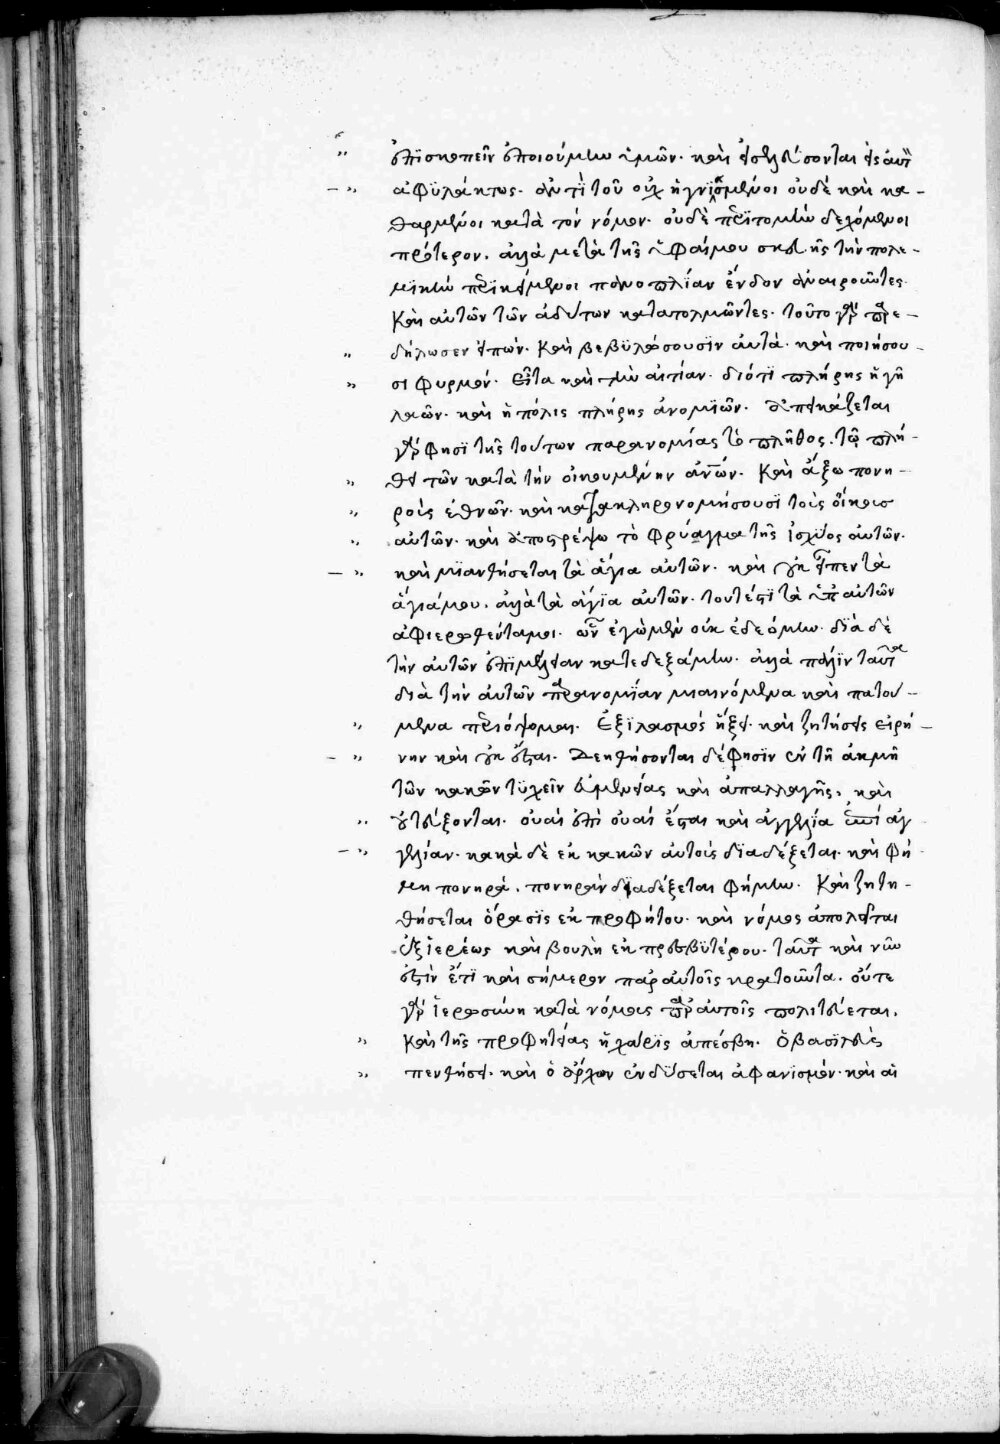 ἐπισκοπεῖν ἐποιούμην ὑμῶν· καὶ εἰσελεύσονται εἰς αὐτὰ
ἀφυλάκτως· ἀντὶ τοῦ οὐχ ἡγνισμένοι οὐδὲ κεκα-
θαρμένοι κατὰ τὸν νόμον· οὐδὲ περιτομὴν δεχόμενοι
πρότερον· ἀλλὰ μετὰ τῆς ὑφαίμου σκευῆς τὴν πολε-
μικὴν περικείμενοι πανοπλίαν ἔνδον ἀναιροῦντες
Καὶ αὐτῶν τῶν ἀδύτων κατατολμῶντες· τοῦτο γὰρ παρε-
δήλωσεν εἰπών· Καὶ βεβηλώσουσιν αὐτά· καὶ ποιήσου-
σι φυρμόν· Εἶτα καὶ τὴν αἰτίαν· διότι πλήρης ἡ γῆ
λαῶν· καὶ ἡ πόλις πλήρης ἀνομιῶν· ἀπεικάζεται
γάρ φησι τῆς τούτων παρανομίας τὸ πλῆθος· τῷ πλή-
θει τῶν κατὰ τὴν οἰκουμένην ἀνων· Καὶ ἄξω πονη-
ροὺς ἐθνῶν· καὶ κατακληρονομήσουσι τοὺς οἴκους
αὐτῶν· καὶ ἀποστρέψω τὸ φρύαγμα τῆς ἰσχύος αὐτῶν·
καὶ μιανθήσεται τὰ ἅγια αὐτῶν· καὶ οὐκ εἶπεν τὰ
ἅγιά μου· ἀλλὰ τὰ ἅγια αὐτῶν· τουτέστι τὰ ὑπ αὐτῶν
ἀφιερωθέντα μοι· ὧν ἐγὼ μὲν οὐκ ἐδεόμην· διὰ δὲ
τὴν αὐτῶν ἐπιμέλειαν κατεδεξάμην· ἀλλὰ πάλιν ταῦτα
διὰ τὴν αὐτῶν παρανομίαν μιαινόμενα καὶ πατού-
μενα περιόψομαι· Ἐξιλασμὸς ἥξει· καὶ ζητήσει εἰρή-
νην καὶ οὐκ ἔσται· Δεηθήσονται δέ φησιν ἐν τῇ ἀκμῇ
τῶν κακῶν τυχεῖν εὐμενείας καὶ ἀπαλλαγῆς· καὶ
οὐ τεύξονται· οὐαὶ ἐπὶ οὐαὶ ἔσται καὶ ἀγγελία ἐπὶ ἀγ-
γελίαν· κακὰ δὲ ἐκ κακῶν αὐτοὺς διαδέξεται· καὶ φή-
μη πονηρὰ· πονηρὰν διαδέξεται φήμην· Καὶ ζητη-
θήσεται ὅρασις ἐκ προφήτου· καὶ νόμος ἀπολεῖται
ἐξ ἱερέως καὶ βουλὴ ἐκ πρεσβυτέρου· ταῦτα καὶ νῦν
ἐστὶν ἔτι καὶ σήμερον παρ αὐτοῖς κρατοῦντα· οὔτε
γὰρ ἱερωσύνη κατὰ νόμους παρ αὐτοῖς πολιτεύεται·
Καὶ τῆς προφητείας ἡ χάρις ἀπέσβη· Ὁ βασιλεὺς
πενθήσει· καὶ ὁ ἄρχων ἐνδύσεται ἀφανισμόν· καὶ αἱ